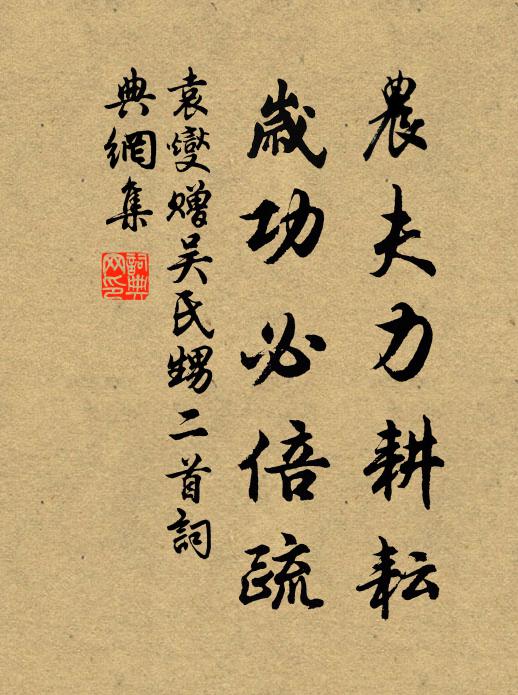 農夫力耕耘
歲功必倍疏
袁燮贈吴氏甥二首詞
典網集
詞典
网印